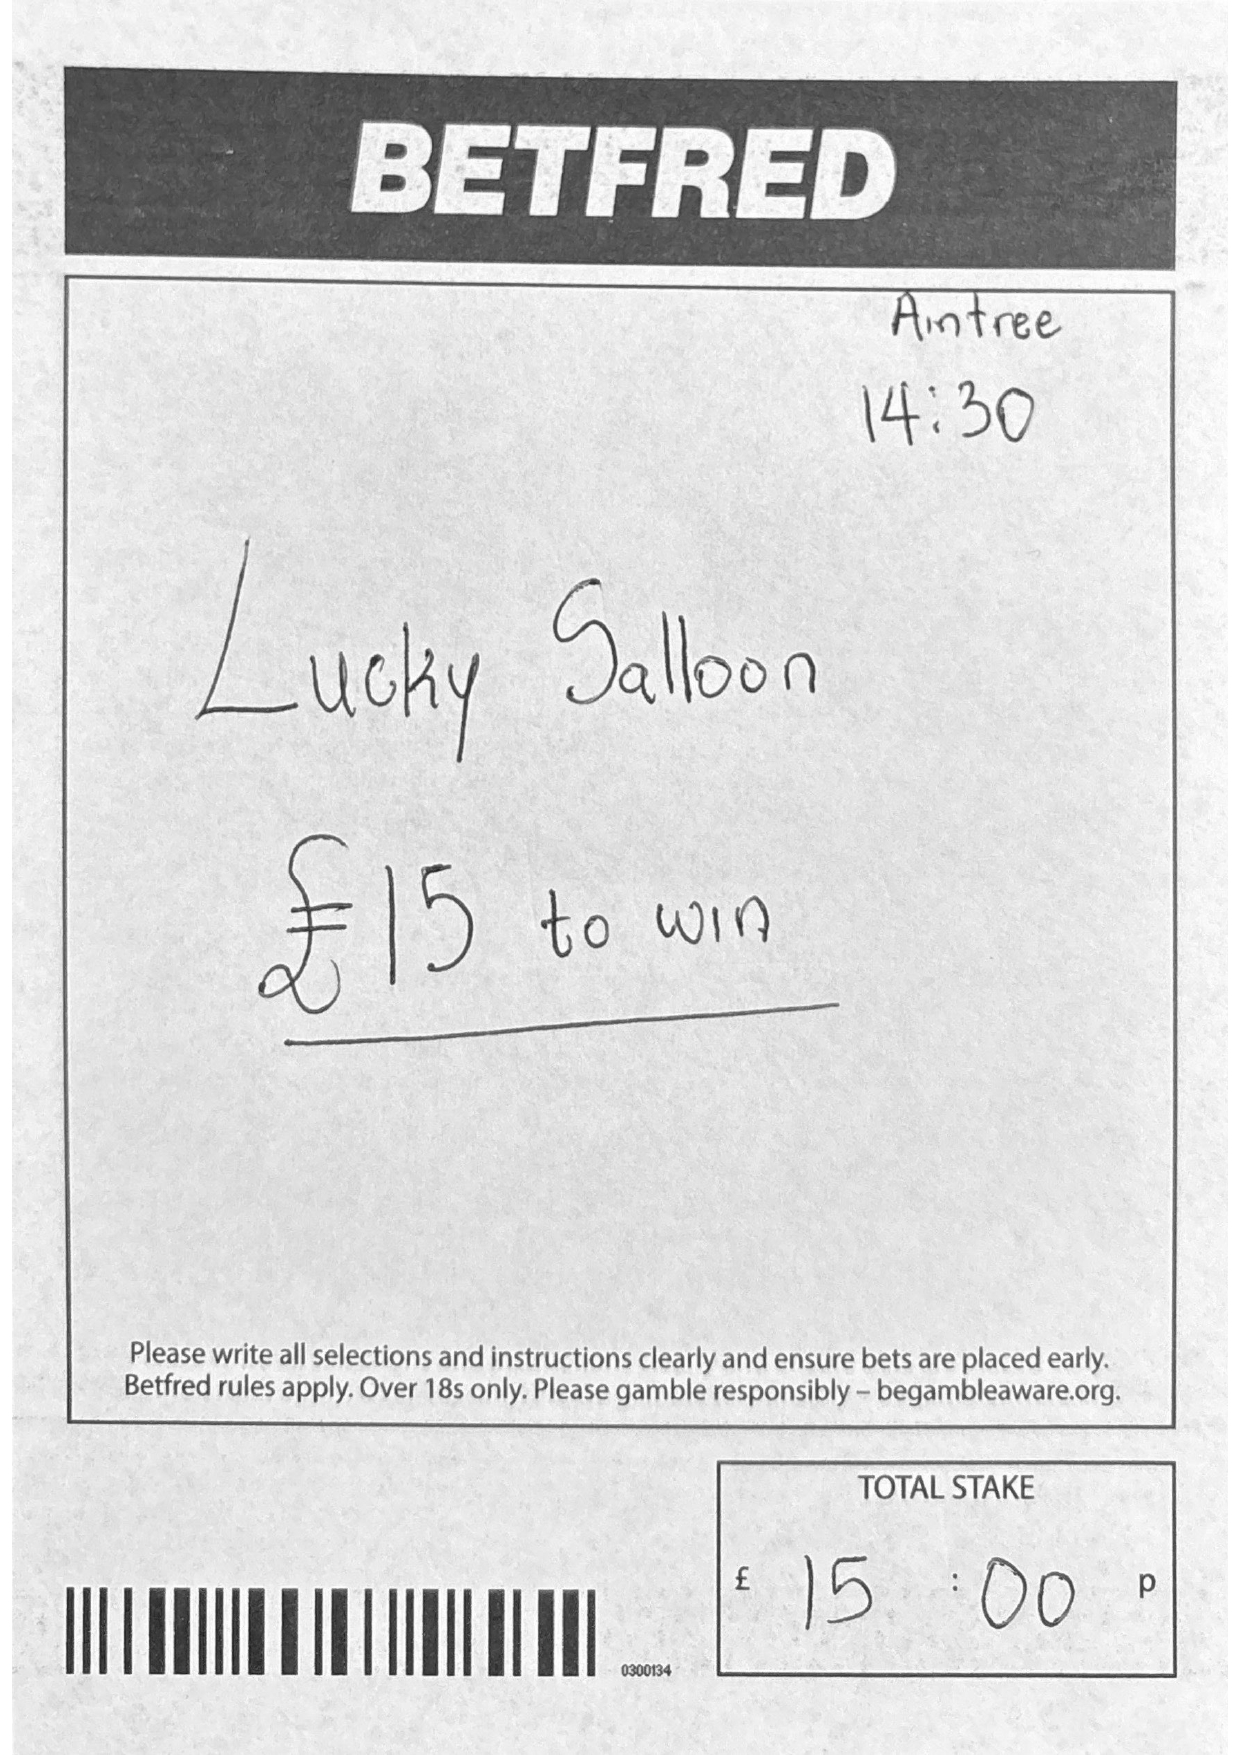 BETFRED
Aintree
14:30
Lucky Salloon
£15 to win
Please write all selections and instructions clearly and ensure bets are placed early.
Betfred rules apply. Over 18s only. Please gamble responsibly – begambleaware.org.
TOTAL STAKE
£ 15 : 00 p
0300134